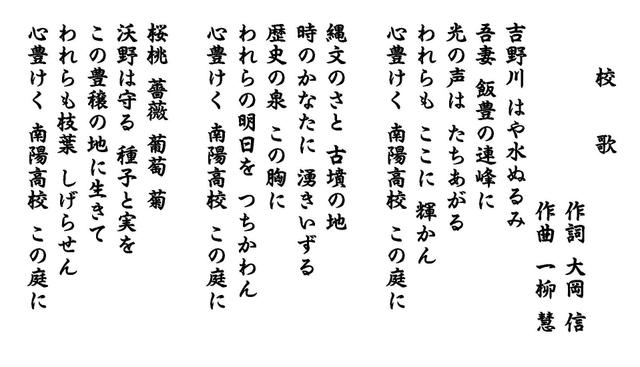 校 歌
作詞 大岡 信
作曲 一柳 慧
吉野川 はや水ぬるみ
吾妻 飯豊の連峰に
光の声は たちあがる
われらも ここに 輝かん
心豊けく 南陽高校 この庭に
縄文のさと 古墳の地
時のかなたに 湧きいずる
歴史の泉 この胸に
われらの明日を つちかわん
心豊けく 南陽高校 この庭に
桜桃 薔薇 葡萄 菊
沃野は守る 種子と実を
この豊穣の地に生きて
われらも枝葉 しげらせん
心豊けく 南陽高校 この庭に